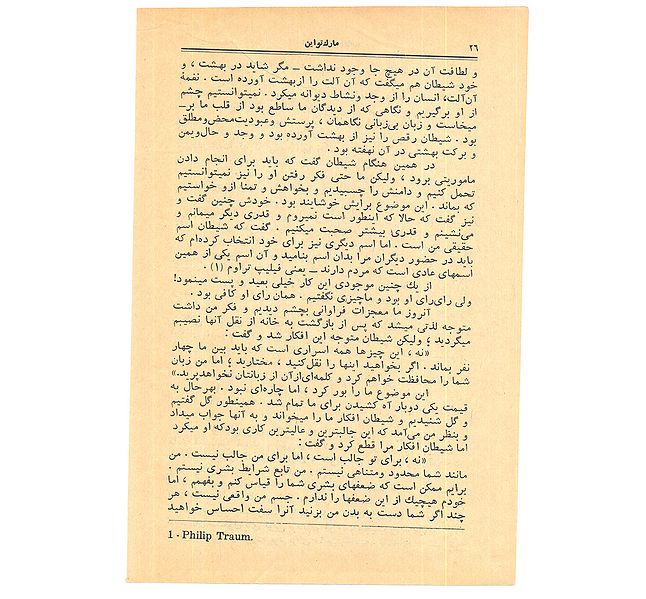 ۲۶
مارك‌تواین
و لطافت آن در هیچ جا وجود نداشت ــ مگر شاید در بهشت ، و
خود شیطان هم میگفت که آن آلت را ازبهشت آورده است . نغمهٔ
آن‌آلت، انسان را از وجد ونشاط دیوانه میکرد . نمیتوانستیم چشم
از او برگیریم و نگاهی که از دیدگان ما ساطع بود از قلب ما برــ
میخاست و زبان بی‌زبانی نگاهمان ، پرستش وعبودیت‌محض‌ومطلق
بود . شیطان رقص را نیز از بهشت آورده بود و وجد و حال‌ویمن
و برکت بهشتی در آن نهفته بود .
در همین هنگام شیطان گفت که باید برای انجام دادن
ماموریتی برود ، ولیکن ما حتی فکر رفتن او را نیز نمیتوانستیم
تحمل کنیم و دامنش را چسبیدیم و بخواهش و تمنا ازو خواستیم
که بماند . این موضوع برایش خوشایند بود . خودش چنین گفت و
نیز گفت که حالا که اینطور است نمیروم و قدری دیگر میمانم و
می‌نشینم و قدری بیشتر صحبت میکنیم . گفت که شیطان اسم
حقیقی من است . اما اسم دیگری نیز برای خود انتخاب کرده‌ام که
باید در حضور دیگران مرا بدان اسم بنامید و آن اسم یکی از همین
اسمهای عادی است که مردم دارند ــ یعنی فیلیپ تراوم (۱) .
از یك چنین موجودی این کار خیلی بعید و پست مینمود!
ولی رای‌رای او بود و ماچیزی نگفتیم . همان رای او کافی بود .
آنروز ما معجزات فراوانی بچشم دیدیم و فکر من داشت
متوجه لذتی میشد که پس از بازگشت به خانه از نقل آنها نصیبم
میگردید ؛ ولیکن شیطان متوجه این افکار شد و گفت :
«نه ، این چیزها همه اسراری است که باید بین ما چهار
نفر بماند . اگر بخواهید اینها را نقل‌کنید ، مختارید ؛ اما من زبان
شما را محافظت خواهم کرد و کلمه‌ای‌ازآن از زبانتان نخواهدپرید.»
این موضوع ما را بور کرد ، اما چاره‌ای نبود . بهرحال به
قیمت یکی دوبار آه کشیدن برای ما تمام شد . همینطور گل گفتیم
و گل شنیدیم و شیطان افکار ما را میخواند و به آنها جواب میداد
و بنظر من می‌آمد که این جالبترین و عالیترین کاری بودکه او میکرد
اما شیطان افکار مرا قطع کرد و گفت :
«نه ، برای تو جالب است ، اما برای من جالب نیست . من
مانند شما محدود ومتناهی نیستم . من تابع شرایط بشری نیستم .
برایم ممکن است که ضعفهای بشری شما را قیاس کنم و بفهمم ، اما
خودم هیچیك از این ضعفها را ندارم . جسم من واقعی نیست ، هر
چند اگر شما دست به بدن من بزنید آنرا سفت احساس خواهید
1 - Philip Traum.